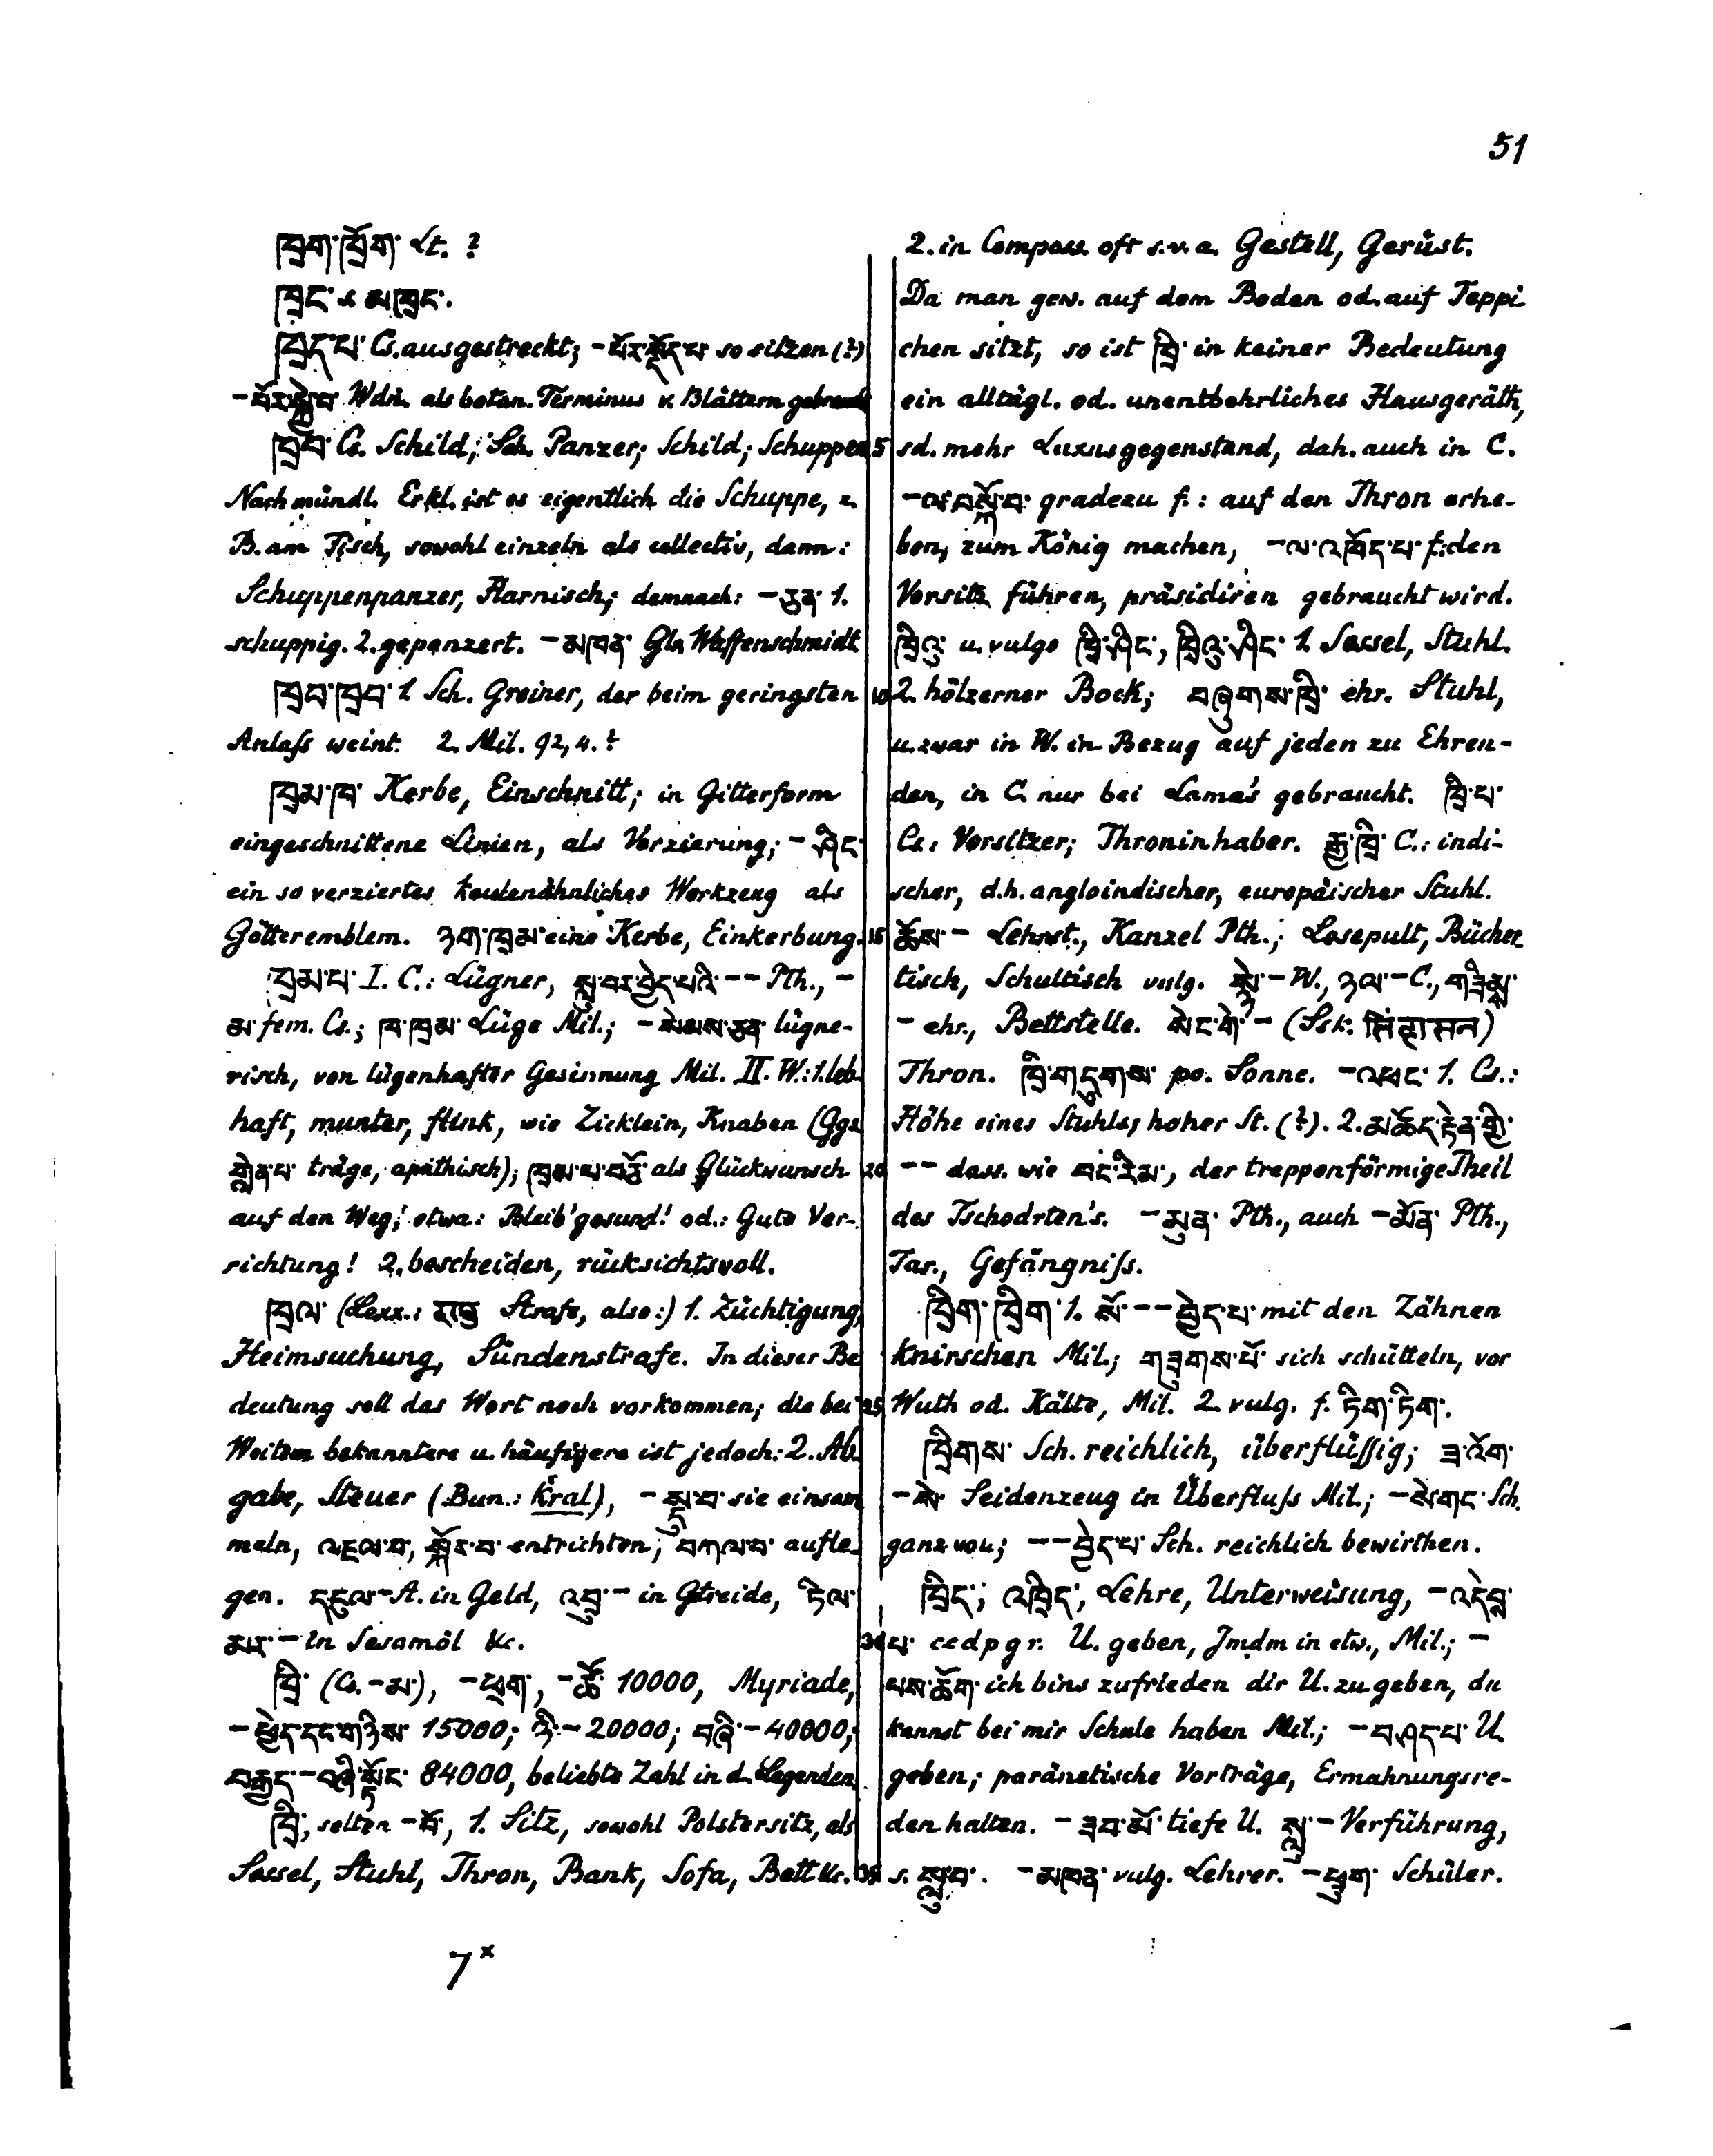 51
ཁྲག་ཁྲོག་ Lt. ?
ཁྲང་ s མཁྲང་.
ཁྲད་པ་ Cs. ausgestreckt; – པོར་སྡོད་པ་ so sitzen (?)
Wdn. als botan. Terminus v. Blättern gebraucht
ཁྲབ་ Cs. Schild; Sch. Panzer; Schild; Schuppen
Nach mündl. Erkl. ist es eigentlich die Schuppe, z.
B. am Fisch, sowohl einzeln als collectiv, dann:
Schuppenpanzer, Harnisch; demnach: – ཅན་ 1.
schuppig. 2. gepanzert. – མཁན་ Glr. Waffenschmidt
ཁྲབ་ཁྲབ་ 1. Sch. Greiner, der beim geringsten
Anlaſs weint. 2. Mil. 92, 4. ?
ཁྲམ་ཁ་ Kerbe, Einschnitt; in Gitterform
eingeschnittene Linien, als Verzierung; – ཤིང་
ein so verziertes keulenähnliches Werkzeug als
Götteremblem. ཉག་ཁྲམ་ eine Kerbe, Einkerbung.
ཁྲམ་པ་ I. C.: Lügner, སླུ་བར་བྱེད་པའི་ – – Pth., –
མ་ fem. Cs.; ཁ་ཁྲམ་ Lüge Mil.; – སེམས་ཅན་ lügne-
risch, von lügenhafter Gesinnung Mil. II. W.: 1. leb-
haft, munter, flink, wie Zicklein, Knaben (Ggs.
གླེན་པ་ träge, apathisch); ཁྲམ་པ་བཅོ་ als Glückwunsch
auf den Weg! etwa: Bleib' gesund! od.: Gute Ver-
richtung! 2. bescheiden, rücksichtsvoll.
ཁྲལ་ (Lexx.: दण्ड Strafe, also:) 1. Züchtigung,
Heimsuchung, Sündenstrafe. In dieser Be
deutung soll das Wort noch vorkommen; die bei
Weitem bekanntere u. häufigere ist jedoch: 2. Ab-
gabe, Steuer (Bun.: Kral), – སྡུ་བ་ sie einsam
meln, འཇལ་བ་, སྐོར་བ་ entrichten; བཀལ་བ་ aufle-
gen. དངུལ་ – A. in Geld, འབྲུ་ – in Gtreide, ཏིལ་
མར་ – in Sesamöl &c.
ཁྲི་ (Cs. – མ་), – ཕྲག་, – ཚོ་ 10000, Myriade,
– ཕྱེད་དང་གཉིས་ 15000; ཉི་ – 20000; བཞི་ – 40000;
བརྒྱད་ – བཞི་སྟོང་ 84000, beliebte Zahl in d. Legenden
ཁྲི་, selten – བོ་, 1. Sitz, sowohl Polstersitz, als
Sessel, Stuhl, Thron, Bank, Sofa, Bett &c.
2. in Composs. oft s.v.a. Gestell, Gerüst.
Da man gew. auf dem Boden od. auf Teppi-
chen sitzt, so ist ཁྲི་ in keiner Bedeutung
ein alltägl. od. unentbehrliches Hausgeräth,
5 sd. mehr Luxusgegenstand, dah. auch in C.
– ལ་བསྐོ་བ་ gradezu f.: auf den Thron erhe-
ben, zum König machen, – ལ་འཁོད་པ་ f: den
Vorsitz führen, präsidiren gebraucht wird.
ཁྲིའུ་ u. vulgo ཁྲི་ཤིང་, ཁྲིའུ་ཤིང་ 1. Sessel, Stuhl.
10 2. hölzerner Bock; བཞུགས་ཁྲི་ ehr. Stuhl,
u. zwar in W. in Bezug auf jeden zu Ehren-
den, in C. nur bei Lama's gebraucht. ཁྲི་པ་
Cs.: Vorsitzer; Throninhaber. རྒྱ་ཁྲི་ C.: indi-
scher, d.h. angloindischer, europäischer Stuhl.
15 ཆོས་ – Lehrst., Kanzel Pth.; Lesepult, Bücher-
tisch, Schultisch vulg. – W., ཉལ་ – C., གཟིམ་
– ehr., Bettstelle. སེང་གེ་ – (Ssk. सिंहासन)
Thron. ཁྲི་གདུགས་ po. Sonne. – འཕང་ 1. Cs.:
Höhe eines Stuhls; hoher St. (?). 2. མཆོད་རྟེན་གྱི་
20 – – dass. wie བང་རིམ་, der treppenförmige Theil
des Tschodrten's. – མུན་ Pth., auch – མོན་ Pth.,
Tar., Gefängniſs.
ཁྲིག་ཁྲིག་ 1. སོ་ – – བྱེད་པ་ mit den Zähnen
knirschen Mil.; གཟུགས་པོ་ sich schütteln, vor
25 Wuth od. Kälte, Mil. 2. vulg. f. ཏིག་ཏིག་.
ཁྲིགས་ Sch. reichlich, überflüſsig; ཟ་འོག་
– སེ་ Seidenzeug in Überfluſs Mil.; – སེ་གང་ Sch.
ganz voll; – – བྱེད་པ་ Sch. reichlich bewirthen.
ཁྲིད་, འཁྲིད་, Lehre, Unterweisung, – འདེབས་
30 པ་ ccdpgr. U. geben, Jmdm in etw., Mil.; –
པས་ཆོག་ ich bins zufrieden dir U. zu geben, du
kannst bei mir Schule haben Mil.; – བཤད་པ་ U.
geben; paränetische Vorträge, Ermahnungsre-
den halten. – ཟབ་མོ་ tiefe U. སླུ་ – Verführung,
35 s. སླུ་བ་. – མཁན་ vulg. Lehrer. – ཕྲུག་ Schüler.
7 x